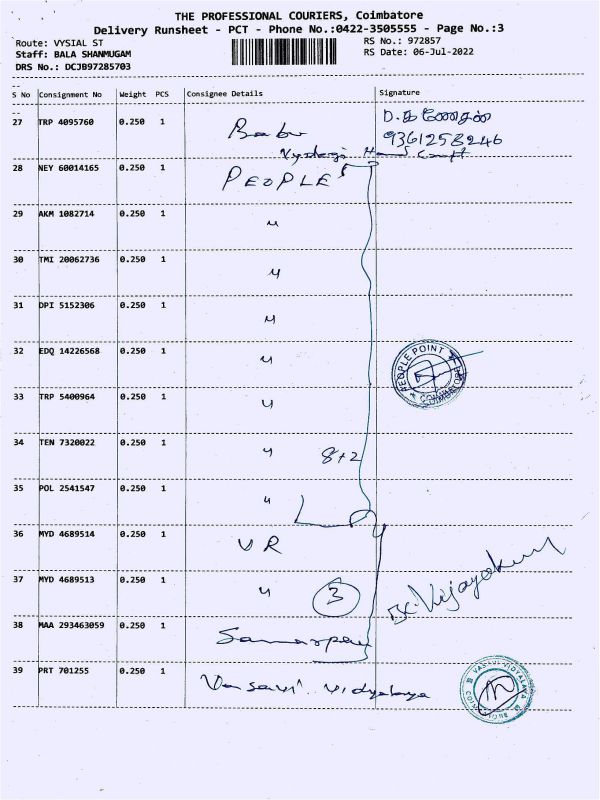 THE PROFESSIONAL COURIERS, Coimbatore
Delivery Runsheet - PCT - Phone No.:0422-3505555 - Page No.:3
Route: VYSIAL ST RS No.: 972857
Staff: BALA SHANMUGAM RS Date: 06-Jul-2022
DRS No.: DCJB97285703
S No Consignment No Weight PCS Consignee Details Signature
27 TRP 4095760 0.250 1 Babu D. கணேசன்
9361258246
28 NEY 60014165 0.250 1 PEOPLE'S
29 AKM 1082714 0.250 1 "
30 TMI 20062736 0.250 1 "
31 DPI 5152306 0.250 1 "
32 EDQ 14226568 0.250 1 " PEOPLE POINT COIMBATORE
33 TRP 5400964 0.250 1 "
34 TEN 7320022 0.250 1 " 8+2
35 POL 2541547 0.250 1 "
36 MYD 4689514 0.250 1 VR
37 MYD 4689513 0.250 1 " 3 Vijayakumar
38 MAA 293463059 0.250 1
39 PRT 701255 0.250 1 Vasavi Vidyalaya VASAVI VIDYALAYA